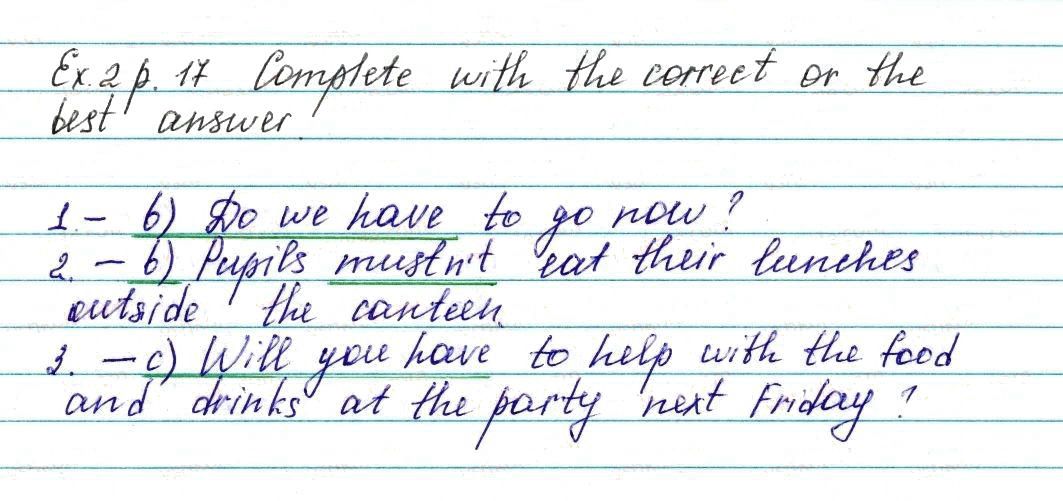 Ex. 2 p. 17 Complete with the correct or the
best answer.
1 - b) Do we have to go now?
2. - b) Pupils mustn't eat their lunches
outside the canteen.
3. - c) Will you have to help with the food
and drinks at the party next Friday?